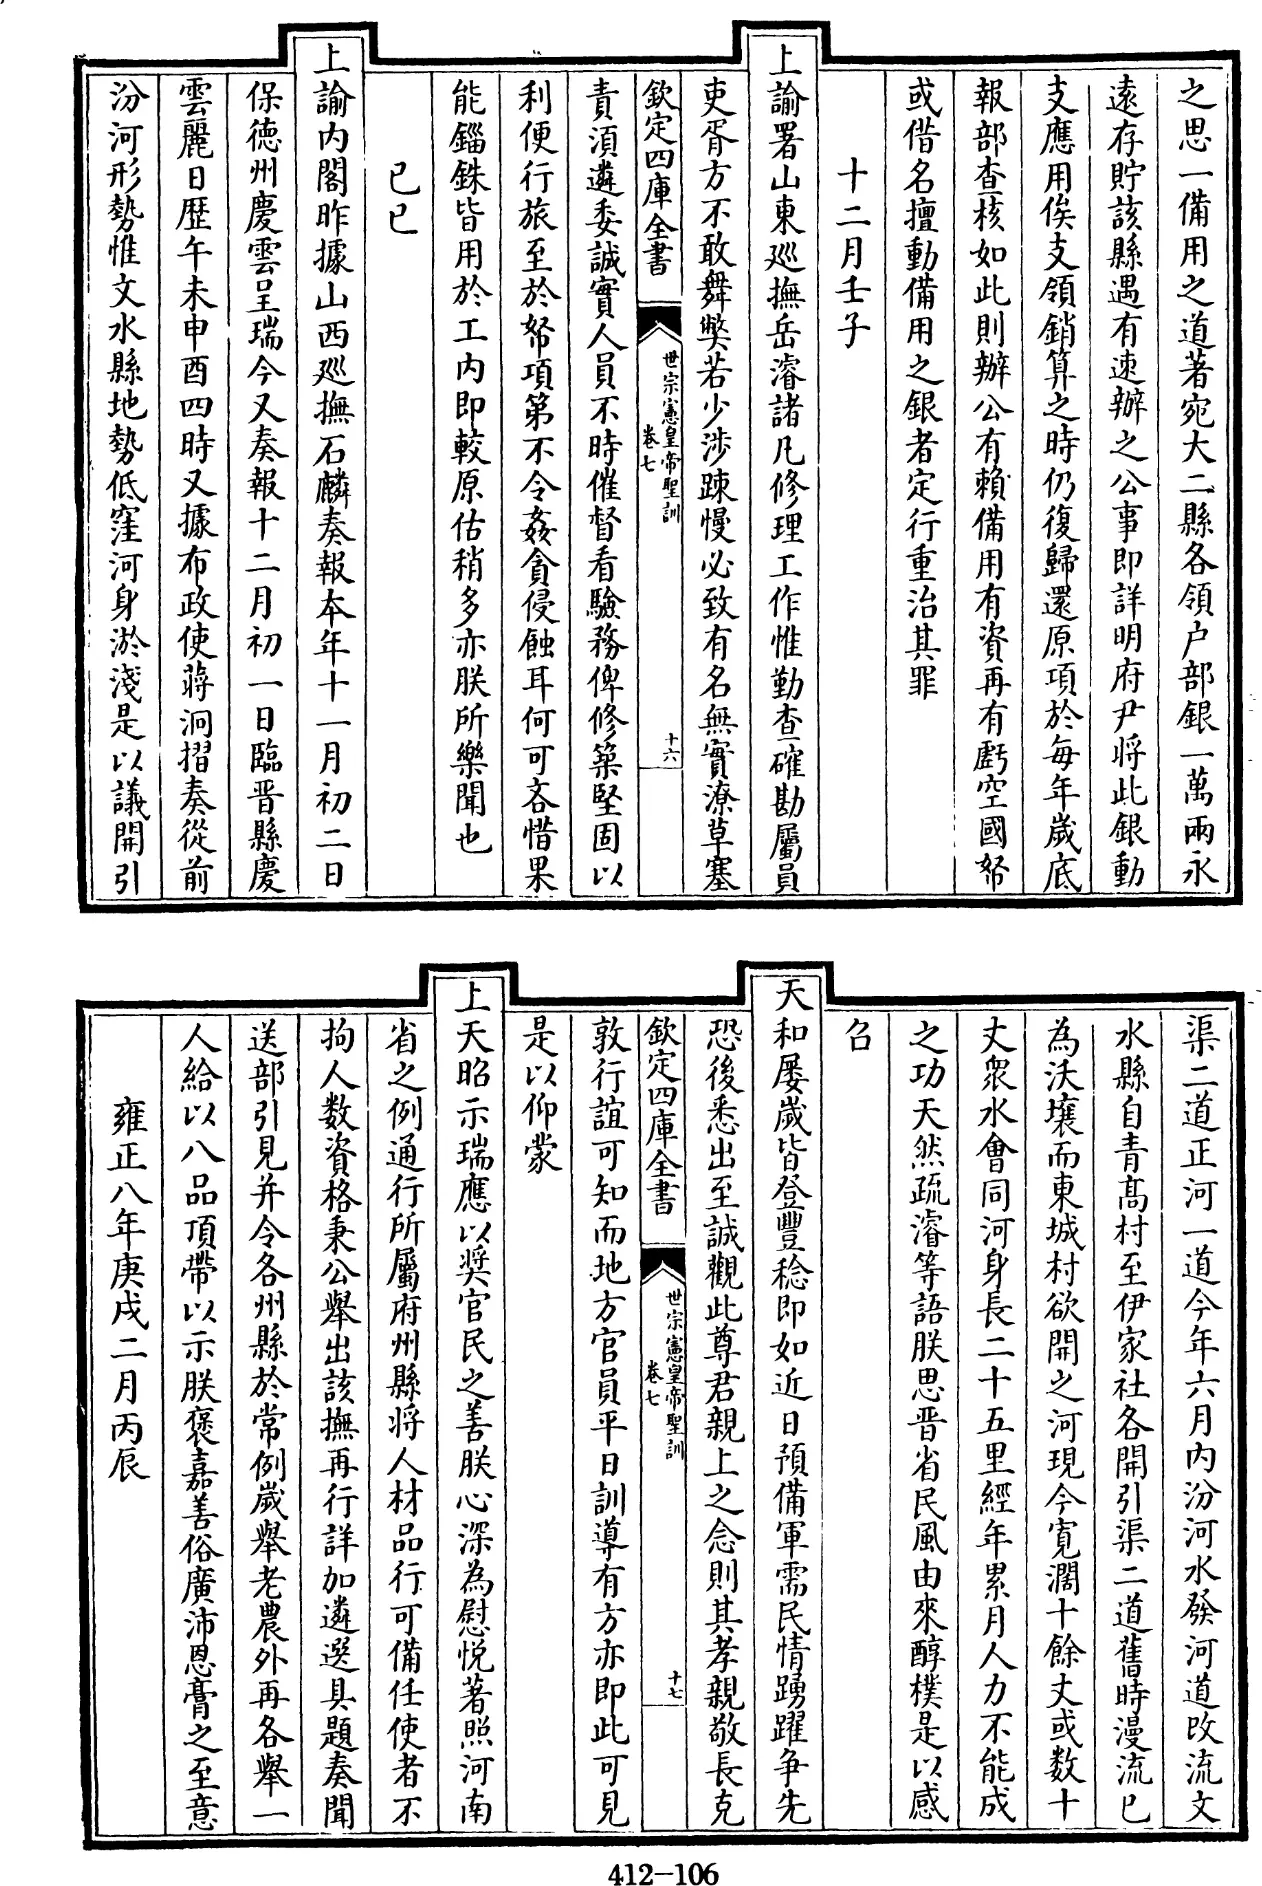 之思一備用之道著宛大二縣各領户部銀一萬兩永
逺存貯該縣遇有速辦之公事即詳明府尹將此銀動
支應用俟支領銷算之時仍復歸還原項於每年嵗底
報部查核如此則辦公有賴備用有資再有虧空國帑
或借名擅動備用之銀者定行重治其罪
十二月壬子
上諭署山東巡撫岳濬諸凡修理工作惟勤查確勘屬員
吏胥方不敢舞獘若少涉踈慢必致有名無實潦草塞
欽定四庫全書
世宗憲皇帝聖訓
卷七
十六
責湏遴委誠實人員不時催督看驗務俾修築堅固以
利便行旅至於帑項第不令姦貪侵蝕耳何可吝惜果
能錙銖皆用於工内即較原估稍多亦朕所樂聞也
己巳
上諭内閣昨據山西巡撫石麟奏報本年十一月初二日
保德州慶雲呈瑞今又奏報十二月初一日臨晋縣慶
雲麗日歷午未申酉四時又據布政使蔣泂摺奏從前
汾河形勢惟文水縣地勢低窪河身淤淺是以議開引
渠二道正河一道今年六月内汾河水發河道改流文
水縣自青髙村至伊家社各開引渠二道舊時漫流已
為沃壤而東城村欲開之河現今寛濶十餘丈或数十
丈衆水會同河身長二十五里經年累月人力不能成
之功天然疏濬等語朕思晋省民風由來醇樸是以感
召
天和屢嵗皆登豐稔即如近日預備軍需民情踴躍争先
恐後悉出至誠觀此尊君親上之念則其孝親敬長克
欽定四庫全書
世宗憲皇帝聖訓
卷七
十七
敦行誼可知而地方官員平日訓導有方亦即此可見
是以仰蒙
上天昭示瑞應以奬官民之善朕心深為慰悦著照河南
省之例通行所屬府州縣將人材品行可備任使者不
拘人数資格秉公舉出該撫再行詳加遴選具題奏聞
送部引見并令各州縣於常例嵗舉老農外再各舉一
人給以八品頂帶以示朕褒嘉善俗廣沛恩膏之至意
雍正八年庚戌二月丙辰
412-106